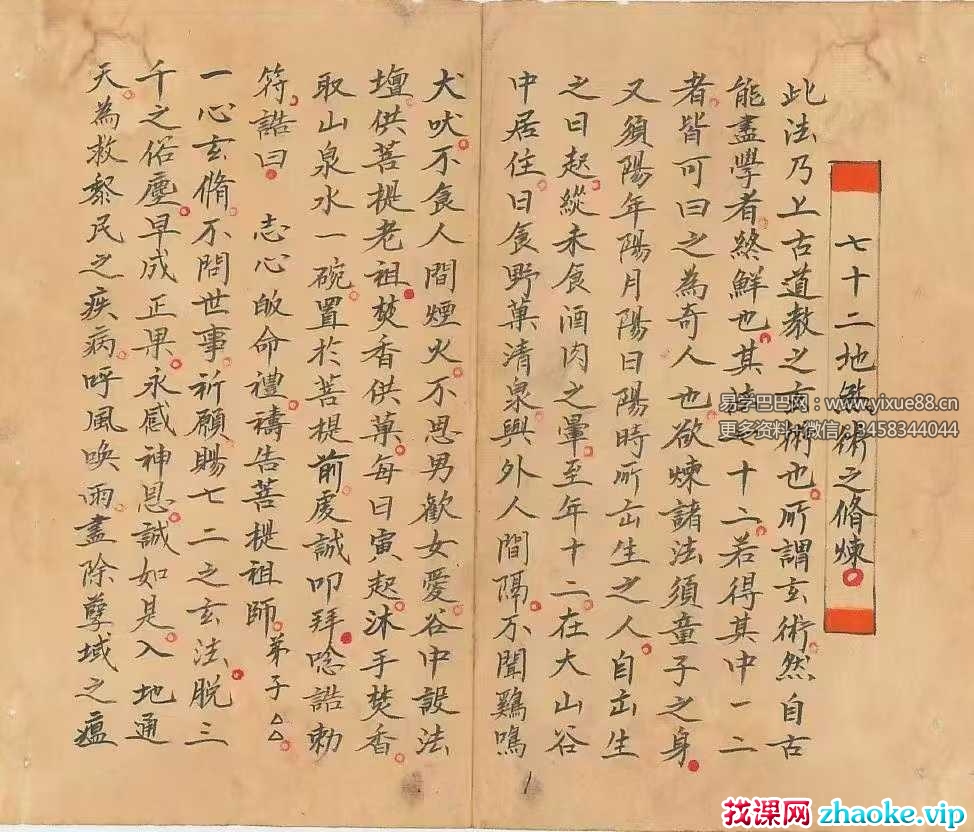 七十二地煞術之脩煉
此法乃上古道教之玄術也所謂玄術然自古
能盡學者終鮮也其法七十二若得其中一二
者皆可曰之為奇人也欲煉諸法須童子之身
又須陽年陽月陽日陽時所出生之人自出生
之日起縱未食酒肉之暈至年十二在大山谷
中居住日食野菓清泉與外人間隔不聞鷄鳴
犬吠不食人間煙火不思男歡女愛谷中設法
壇供菩提老祖焚香供菓每日寅起沐手焚香
取山泉水一碗置於菩提前虔誠叩拜唸誥勅
符誥曰 志心皈命禮禱告菩提祖師弟子△△
一心玄脩不問世事祈願賜七二之玄法脫三
千之俗塵早成正果永感神恩誠如是入地通
天為救黎民之疾病呼風喚雨盡除孽域之瘟
易学巴巴网:www.yixue88.cn
更多资料+微信:3458344044
找课网 zhaoke.vip